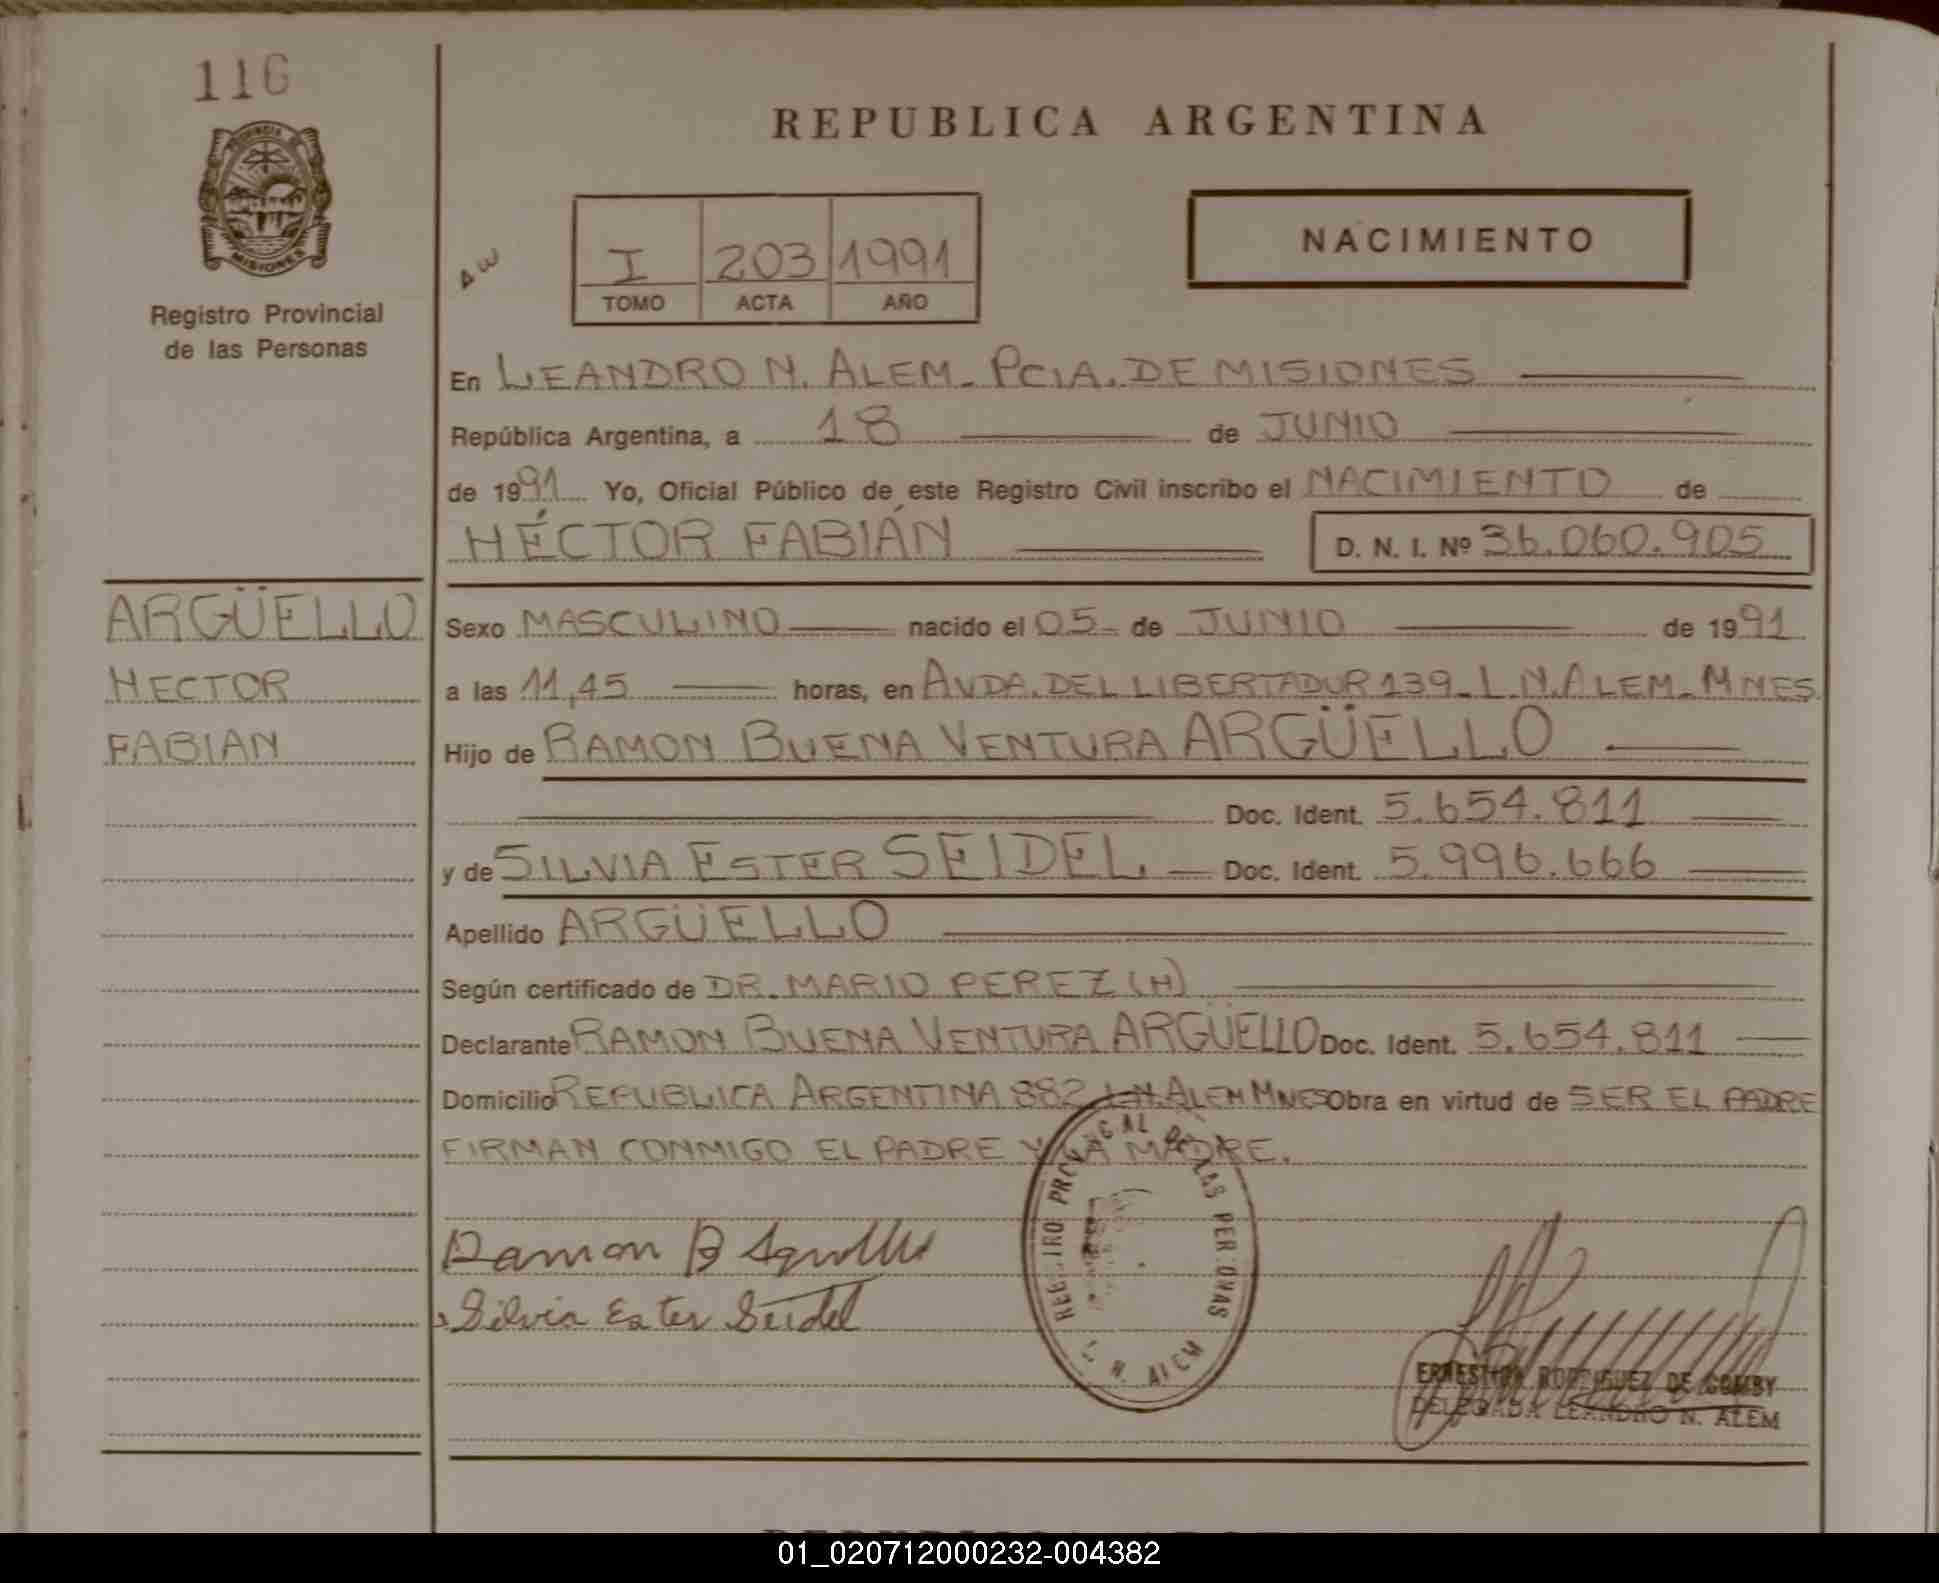 116
PROVINCIA DE
MISIONES
Registro Provincial
de las Personas
REPUBLICA ARGENTINA
NACIMIENTO
AW
I 203 1991
TOMO ACTA AÑO
En LEANDRO N. ALEM - PCIA. DE MISIONES
República Argentina, a 18 de JUNIO
de 1991 Yo, Oficial Público de este Registro Civil inscribo el NACIMIENTO de
HÉCTOR FABIÁN D. N. I. Nº 36.060.905
ARGÜELLO
HECTOR
FABIAN
Sexo MASCULINO nacido el 05 de JUNIO de 1991
a las 11,45 horas, en AVDA. DEL LIBERTADOR 139 - L.N. ALEM - MNES.
Hijo de RAMON BUENA VENTURA ARGÜELLO
Doc. Ident. 5.654.811
y de SILVIA ESTER SEIDEL Doc. Ident. 5.996.666
Apellido ARGÜELLO
Según certificado de DR. MARIO PEREZ (H)
Declarante RAMON BUENA VENTURA ARGÜELLO Doc. Ident. 5.654.811
Domicilio REPUBLICA ARGENTINA 882 L.N. ALEM MNES Obra en virtud de SER EL PADRE
FIRMAN CONMIGO EL PADRE Y LA MADRE.
Ramon B Arguello
Silvia Ester Seidel
REGISTRO PROVINCIAL DE LAS PERSONAS
L. N. ALEM
RODRIGUEZ DE
DELEGADA LEANDRO N. ALEM
01_020712000232-004382